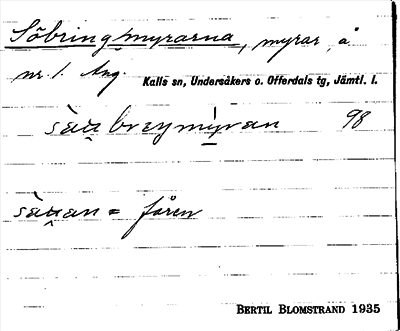 Söbringsmyrarna, myrar, å
nr 1. Äng.
Kalls sn, Undersåkers o. Offerdals tg, Jämtl. l.
sàu̯breŋmỳran 98
sàu̯an = fåren
BERTIL BLOMSTRAND 1935